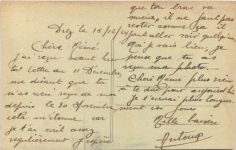 Diez le 15/12/18
Chère Mémé
j'ai reçu avant hier
ta lettre du 11 Décembre
me disant que tu
n'as rien reçu de moi
depuis le 30 Novembre
cela m'étonne car
je t'ai écrit assez
régulièrement j'espère
que tu vas
mieux, il ne faut pas
rester comme ça il
faut aller voir quelqu'un
Moi je vais bien, je
pense que tu as
reçu ma photo.
Chère Mémé plus rien
à te dire pour aujourd'hui
Je t'écrirai plus longuement
un jour
Mille baisers